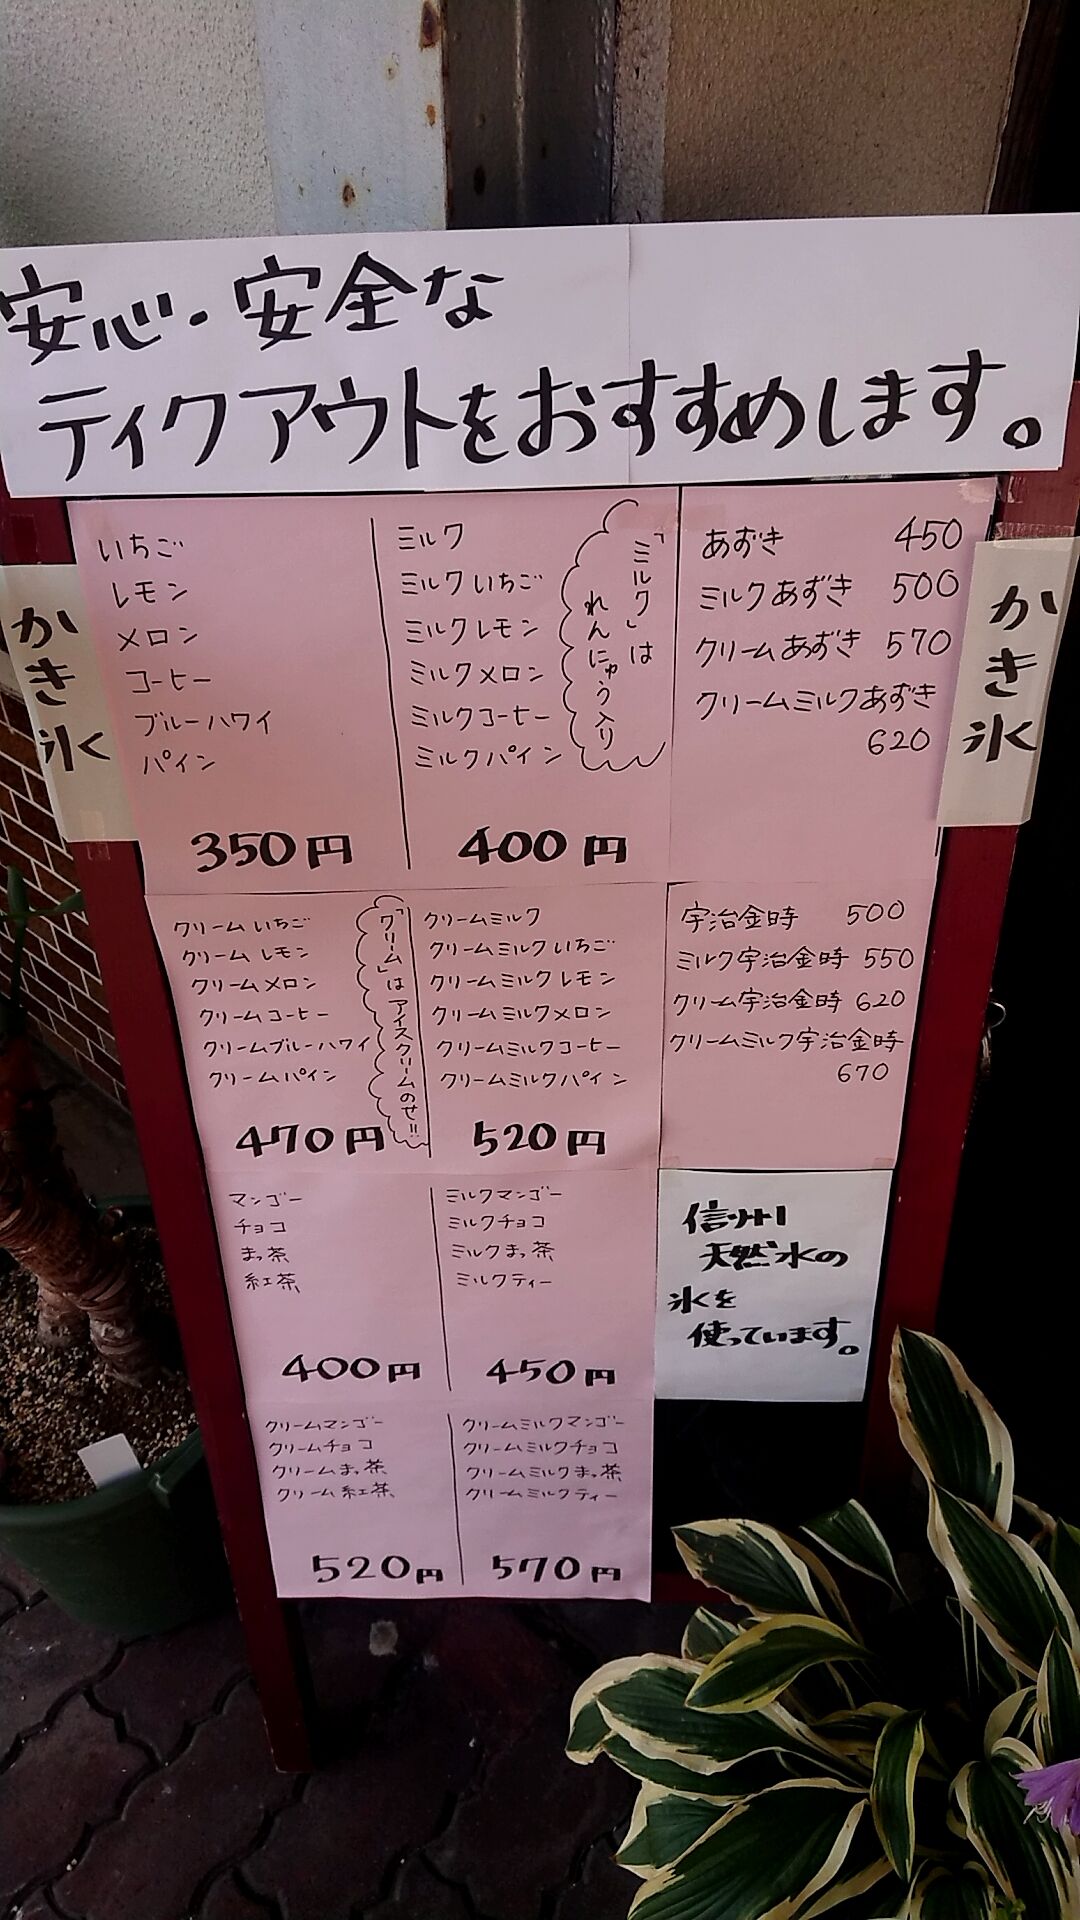 安心・安全な
テイクアウトをおすすめします。
かき氷
かき氷
いちご
レモン
メロン
コーヒー
ブルーハワイ
パイン
350円
ミルク
ミルクいちご
ミルクレモン
ミルクメロン
ミルクコーヒー
ミルクパイン
400円
「ミルク」は
れんにゅう入り
あずき 450
ミルクあずき 500
クリームあずき 570
クリームミルクあずき
620
クリームいちご
クリームレモン
クリームメロン
クリームコーヒー
クリームブルーハワイ
クリームパイン
470円
「クリーム」はアイスクリームのせ!!
クリームミルク
クリームミルクいちご
クリームミルクレモン
クリームミルクメロン
クリームミルクコーヒー
クリームミルクパイン
520円
宇治金時 500
ミルク宇治金時 550
クリーム宇治金時 620
クリームミルク宇治金時
670
マンゴー
チョコ
まっ茶
紅茶
400円
ミルクマンゴー
ミルクチョコ
ミルクまっ茶
ミルクティー
450円
信州
天然水の
氷を
使っています。
クリームマンゴー
クリームチョコ
クリームまっ茶
クリーム紅茶
520円
クリームミルクマンゴー
クリームミルクチョコ
クリームミルクまっ茶
クリームミルクティー
570円